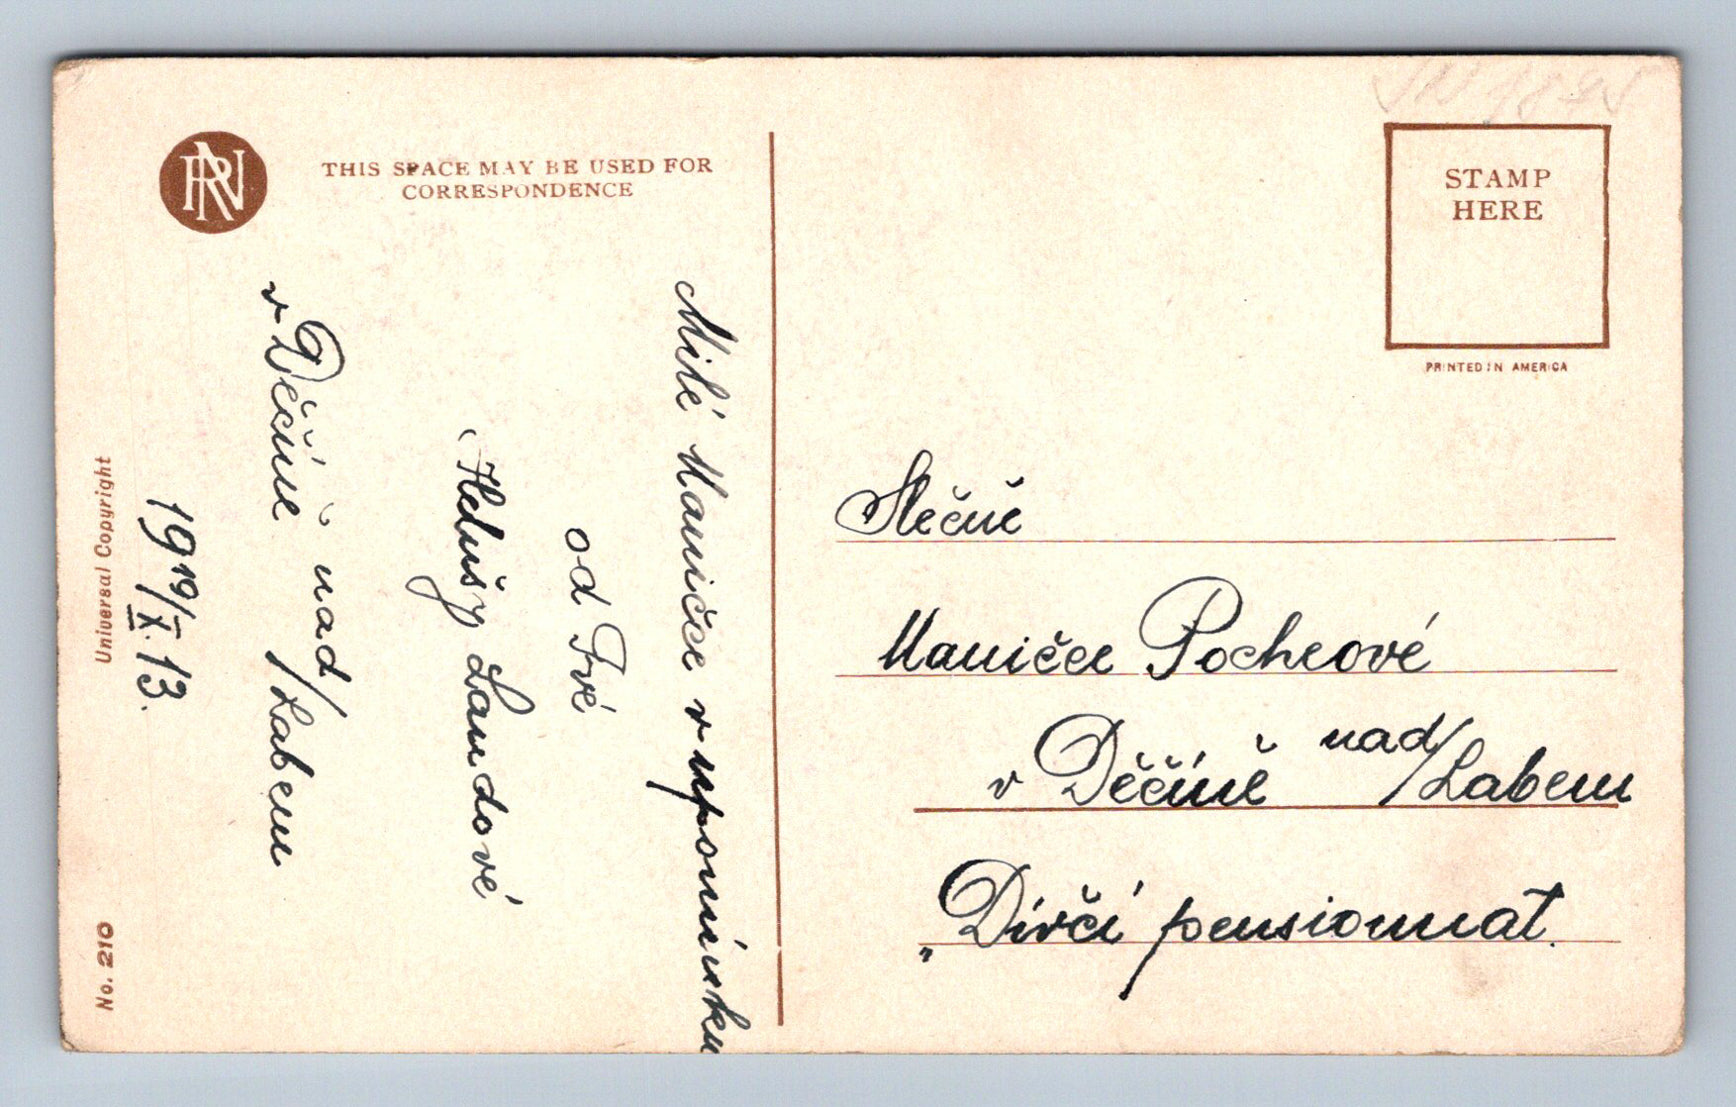 RN
THIS SPACE MAY BE USED FOR
CORRESPONDENCE
STAMP
HERE
PRINTED IN AMERICA
Milé Maničce v upomínku
od Tvé
Helušy Landové
v Děčíně nad/Labem
19 19/X. 13.
Universal Copyright
No. 210
Slečně
Maničce Pocheové
v Děčíně nad/Labem
„Dívčí pensionnát.